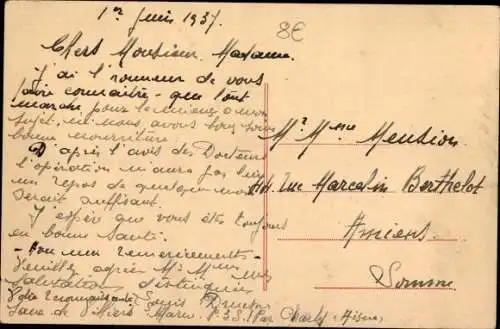 1er Juin 1937.
8€
Chers Monsieur, Madame.
J'ai l'honneur de vous
faire connaitre - que tout
marche pour le mieux a mon
sujet, ici nous avons tous
bonne nourriture.
D'après l'avis des Docteurs
l'opération n'aura pas lieu
un repos de quelques mois
serait suffisant.
J'espère que vous êtes toujours
en bonne Santé.
Veuillez agréer Mr Mme mes
salutations distinguées
Louis
Par Charly - Aisne
Mr Mme Mention
Rue Marcelin Berthelot
Amiens
Somme